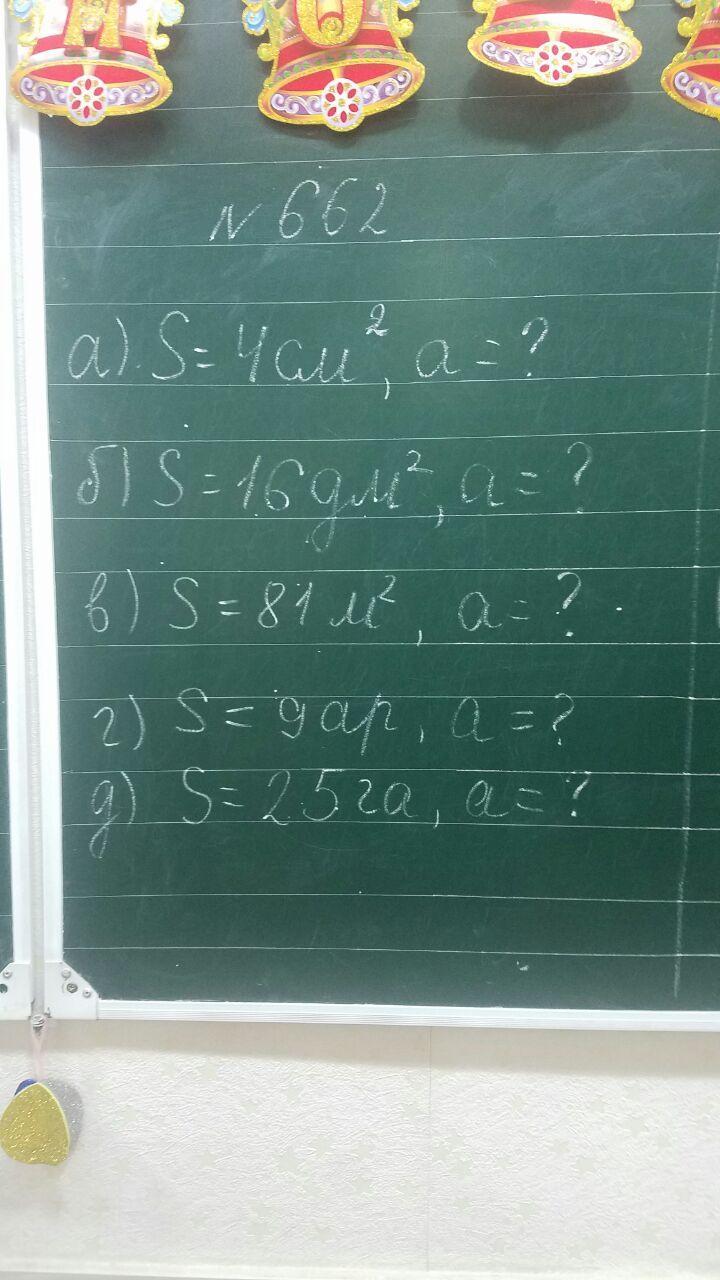 И
О
№ 662
а) S = 4 см², a = ?
б) S = 16 дм², a = ?
в) S = 81 м², a = ?
г) S = 9 ар, a = ?
д) S = 25 га, a = ?